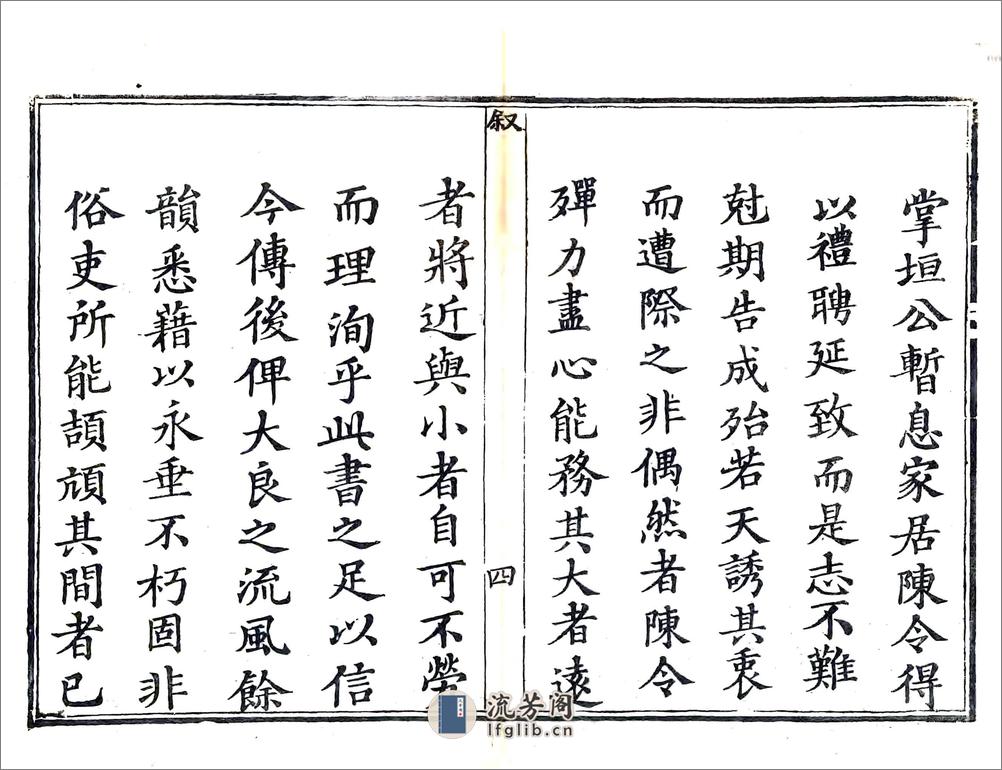 掌垣公暫息家居陳令得
以禮聘延致而是志不難
尅期告成殆若天誘其衷
而遭際之非偶然者陳令
殫力盡心能務其大者遠
叙
四
者將近與小者自可不勞
而理洵乎此書之足以信
今傳後俾大良之流風餘
韻悉藉以永垂不朽固非
俗吏所能頡頏其間者已
流芳阁
lfglib.cn